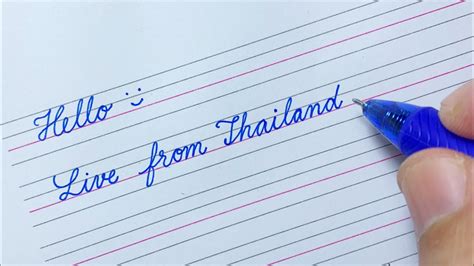 Hello :)
Live from Thailand